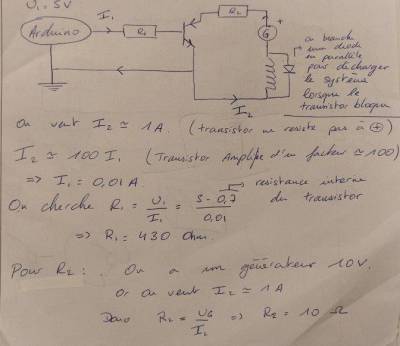 U₁ = 5V
I₁
Arduino
R₁
R₂
+
G
I₂
on branche
une diode
en parallèle
pour décharger
le système
lorsque le
transistor bloque
On veut I₂ ≃ 1A. (transistor ne resiste pas à ⊕)
I₂ ≃ 100 I₁ (Transistor Amplifie d'un facteur ≃ 100)
=> I₁ = 0,01 A.
On cherche R₁ = U₁/I₁ = 5 - 0,7/0,01
resistance interne
du transistor
=> R₁ = 430 Ohm.
Pour R₂ : . On a un générateur 10V.
or on veut I₂ ≃ 1A
Donc R₂ = UG/I₂ => R₂ = 10 Ω